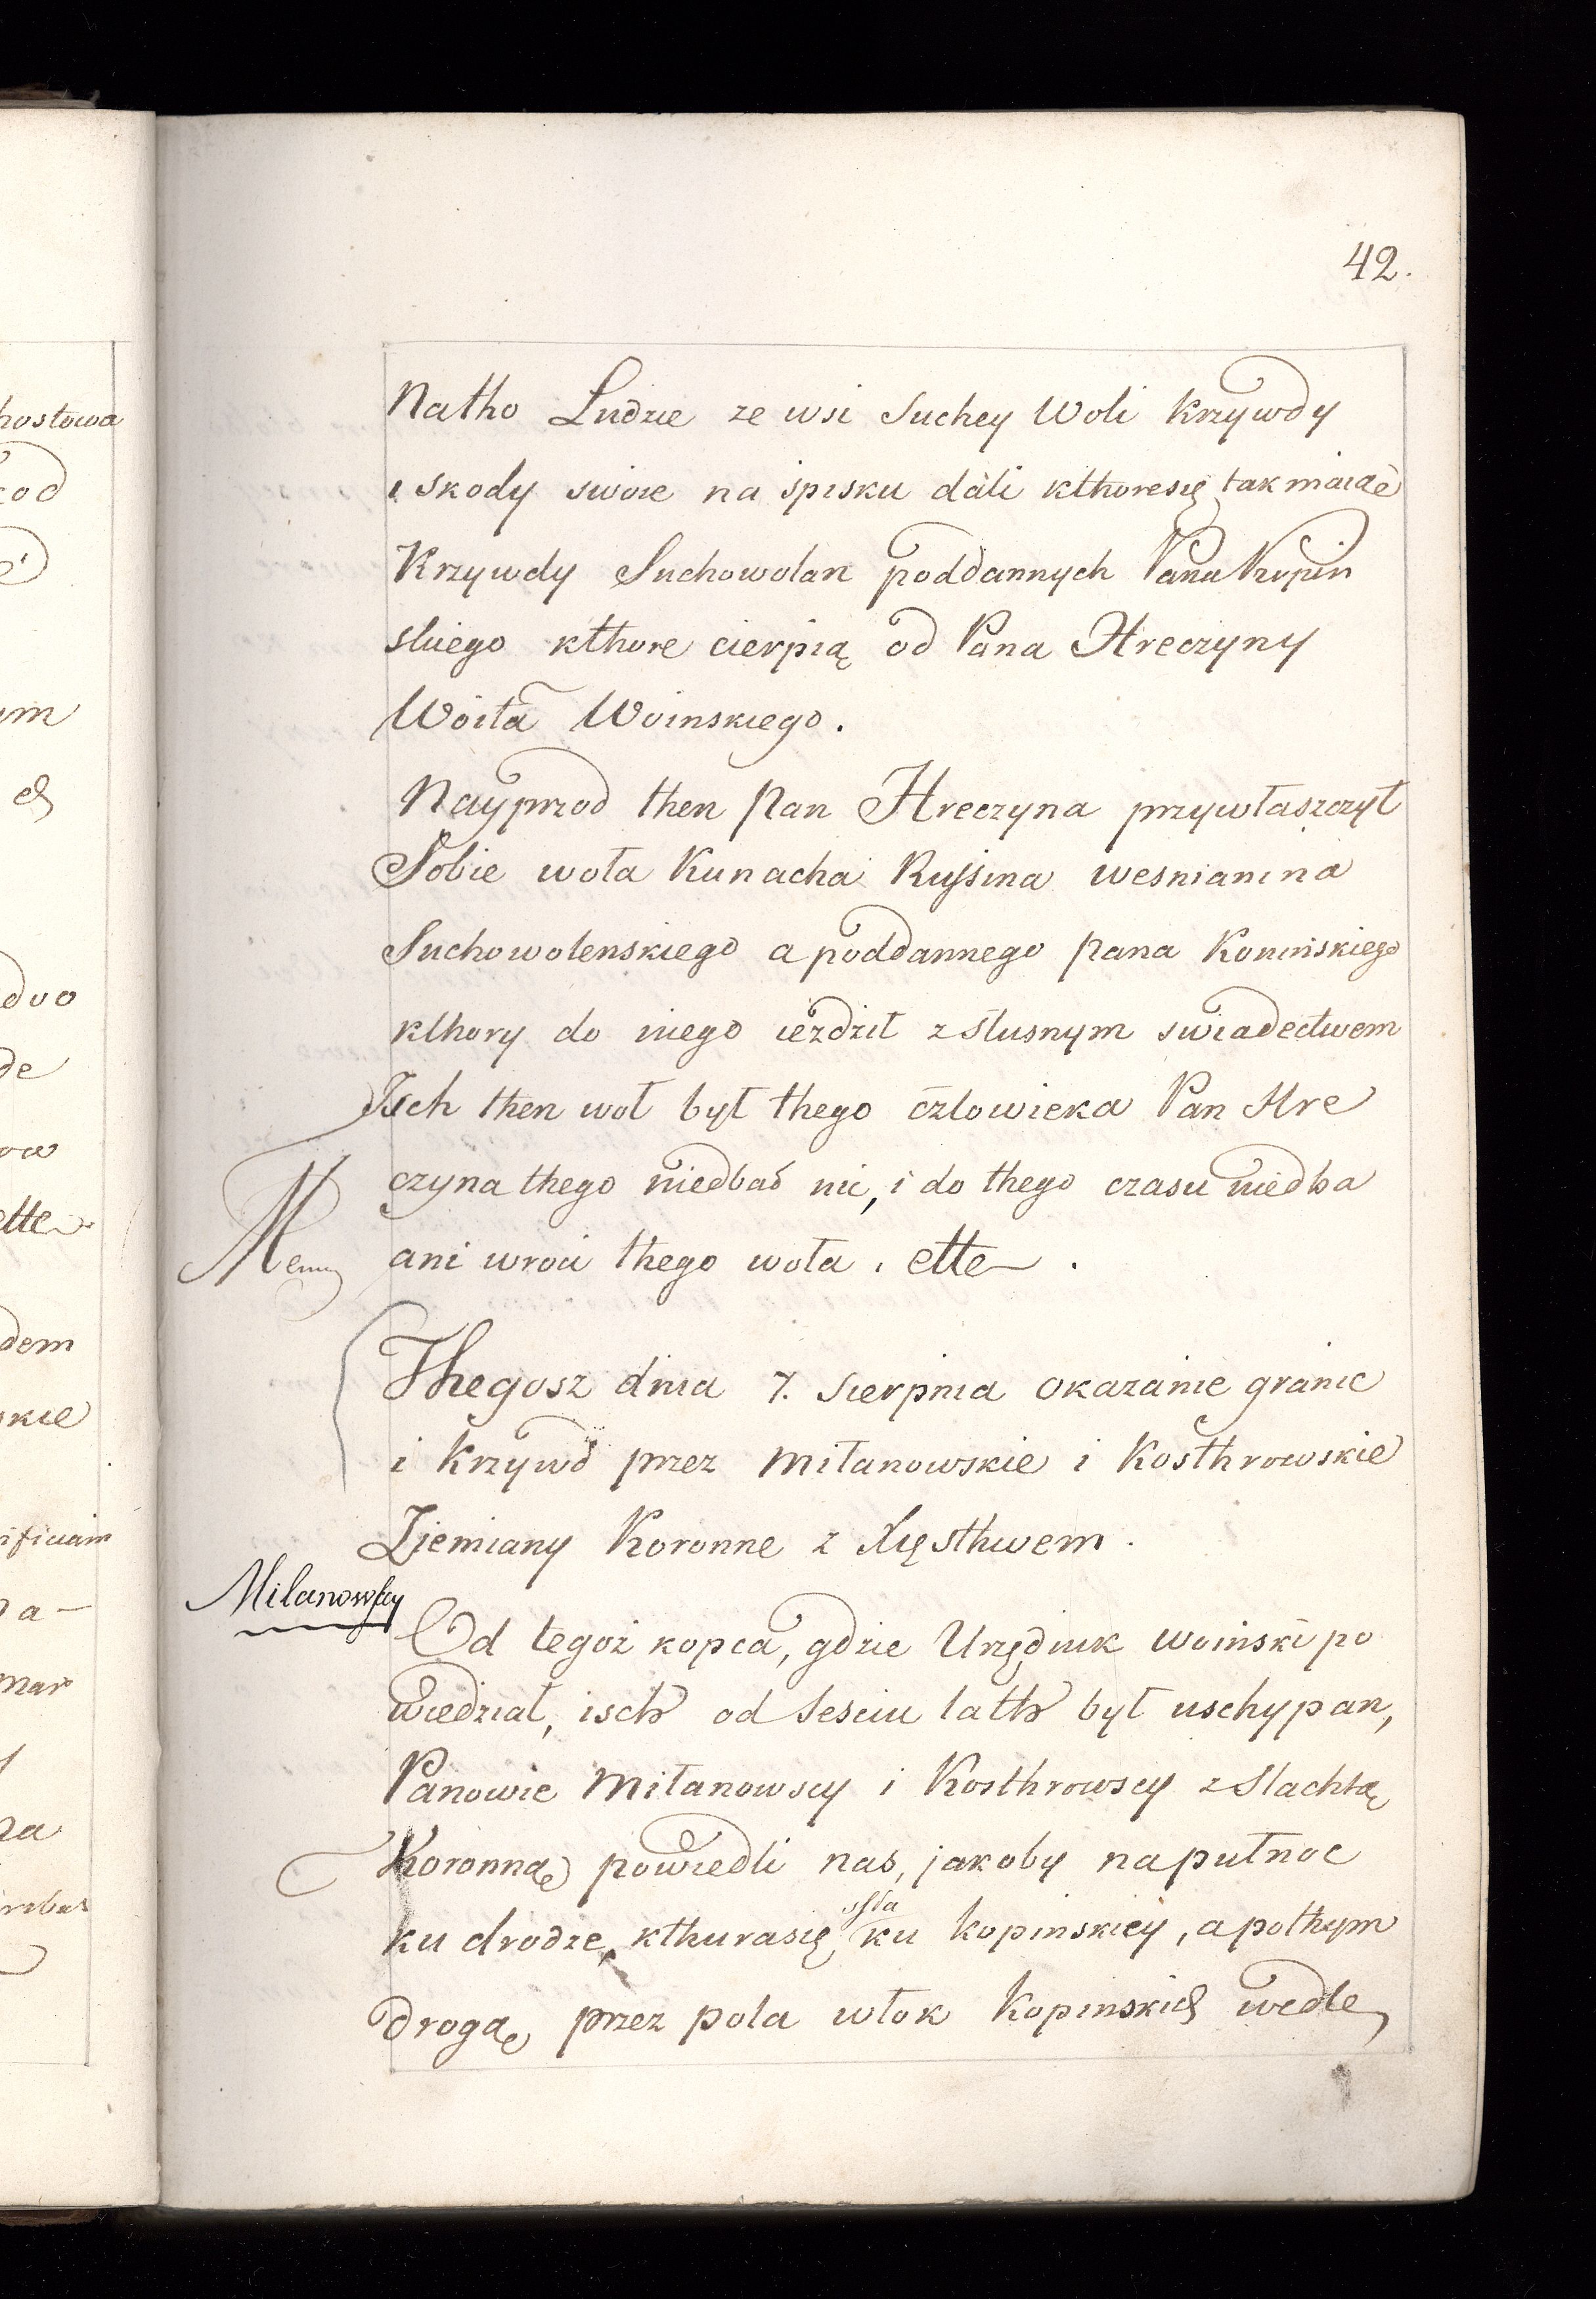 42.
Natho Ludzie ze wsi Suchey Woli Krzywdy
i skody swoie na spisku dali kthoresię tak maiąć
Krzywdy Suchowolan poddannych Pana Kopin
skiego kthore cierpią od Pana Hreczyny
Woita Woinskiego.
Nayprzod then Pan Hreczyna przywłaszczył
Sobie woła Kunacha Russina wesnianina
Suchowolenskiego a poddannego pana Konińskiego
kthory do niego iezdził z słusnym swiadectwem
Isch then woł był thego człowieka Pan Hre
czyna thego niedbał nic, i do thego czasu niedba
ani wroci thego woła. ette.
Thegosz dnia 7. Sierpnia okazanie granic
i Krzywd przez Miłanowskie i Kosthrowskie
Ziemiany Koronne z Xięsthwem.
Milanowscy
Od tegoż kopca, gdzie Urzędnik woiński po
wiedział, isch od sesciu lath był uschypan,
Panowie Miłanowscy i Kosthrowscy z Slachtą
Koronną powiedli nas, jakoby na pułnoc
ku drodze, kthurasię ssła ku kopinskiey, a pothym
drogą przez pola włok Kopinskich wedle